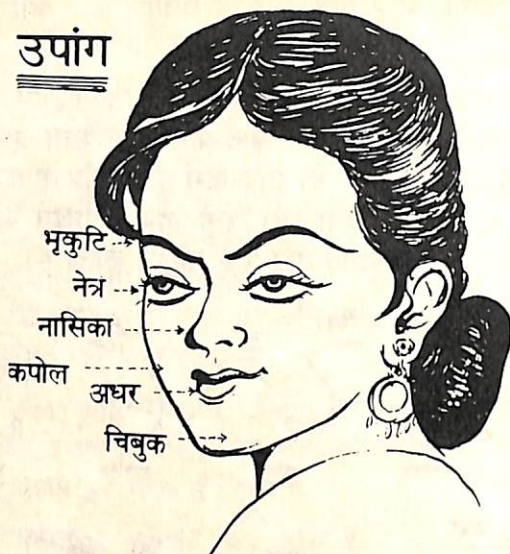 उपांग
भृकुटि
नेत्र
नासिका
कपोल
अधर
चिबुक